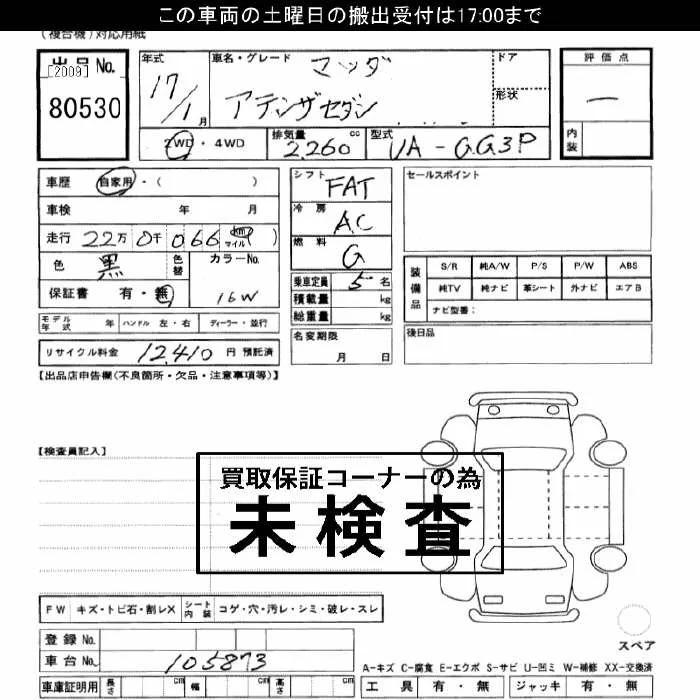 この車両の土曜日の搬出受付は17:00まで
(複合機)対応用紙
出品No. [2009] 80530
年式 17/1月
車名・グレード マツダ アテンザセダン
ドア
形状
評価点 ー
内装
2WD・4WD
排気量 2,260 cc
型式 UA-GG3P
車歴 自家用・( )
車検 年 月
走行 22万 0千 066 km マイル ( )
色 黒 色替 カラーNo. 16W
保証書 有・無
モデル年式 年 ハンドル 左・右 ディーラー・並行
リサイクル料金 12,410 円 預託済
シフト FAT
冷房 AC
燃料 G
乗車定員 5 名
積載量 kg
総重量 kg
名変期限 月 日
セールスポイント
装備品 S/R 純A/W P/S P/W ABS
純TV 純ナビ 革シート 外ナビ エアB
ナビ型番:
後日品
【出品店申告欄(不良箇所・欠品・注意事項等)】
【検査員記入】
買取保証コーナーの為
未検査
FW キズ・トビ石・割レX シート内装 コゲ・穴・汚レ・シミ・破レ・スレ
登録No.
車台No. 105873
車庫証明用 長さ cm 幅 cm 高さ cm
スペア
A-キズ C-腐食 E-エクボ S-サビ U-凹ミ W-補修 XX-交換済
工具 有・無 ジャッキ 有・無